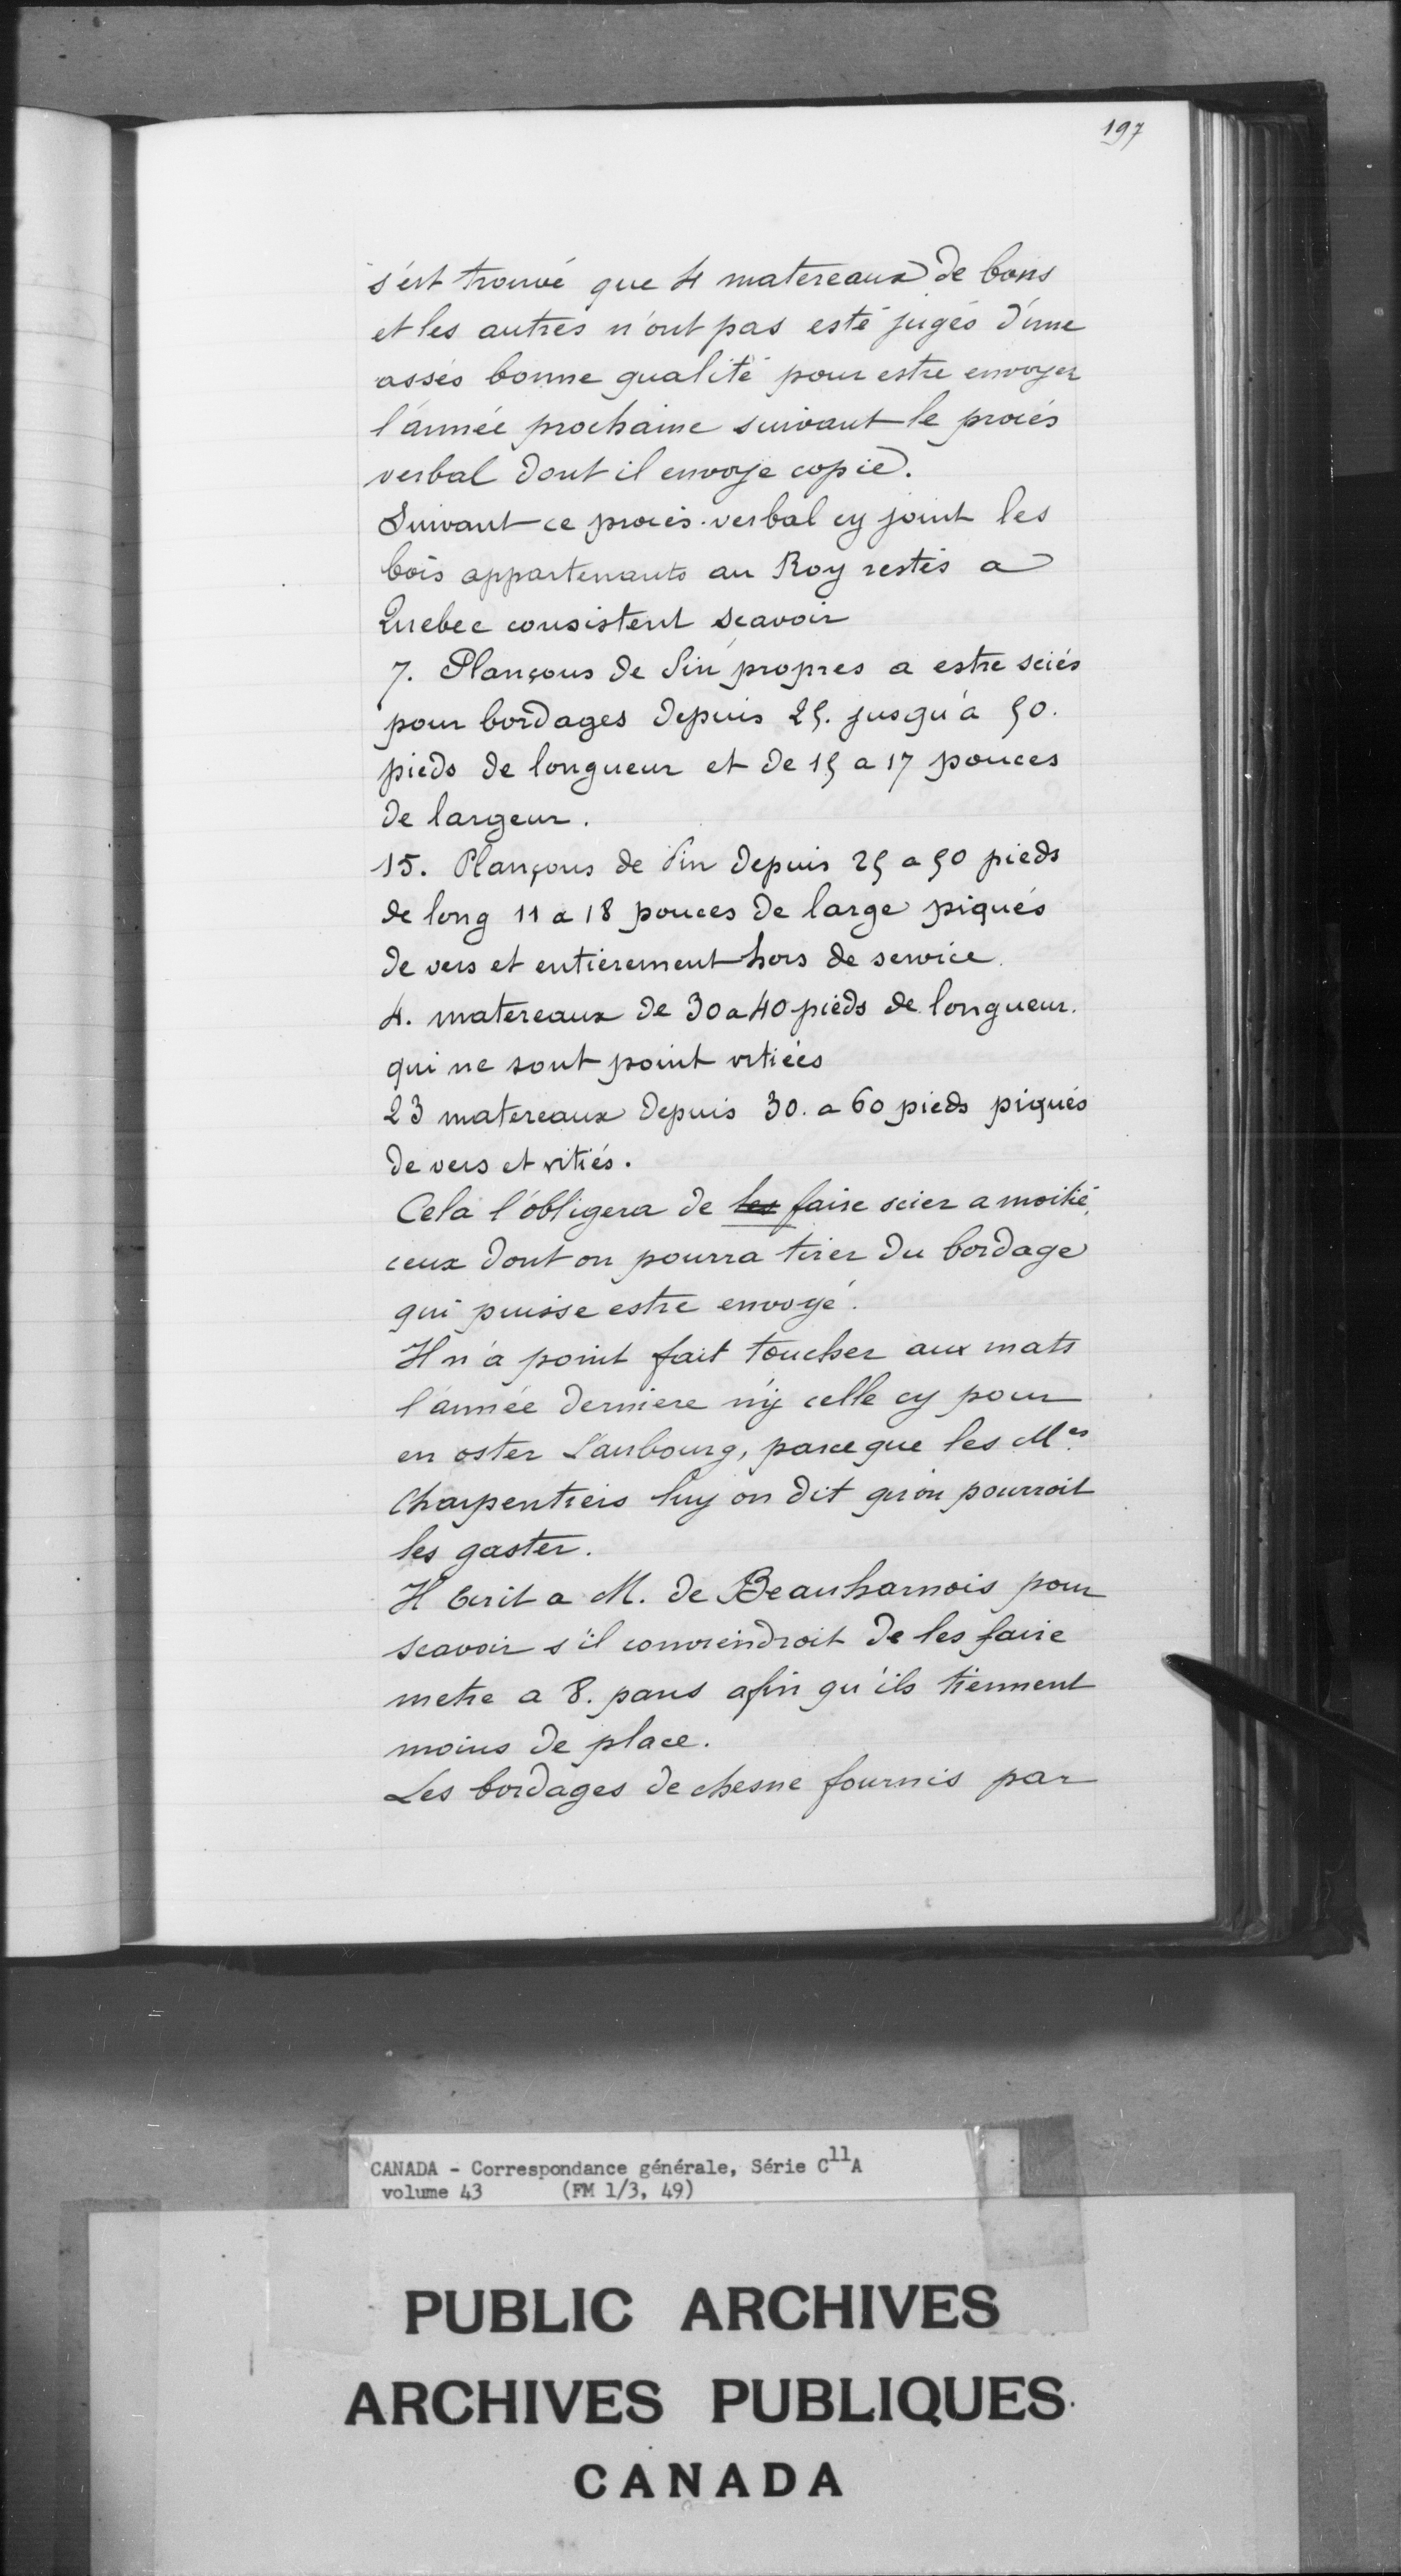 197
s'est trouvé que 4 matereaux de bons
et les autres n'ont pas esté jugés d'une
assés bonne qualité pour estre envoyer
l'année prochaine suivant le procés
verbal dont il envoye copie.
Suivant ce procés-verbal cy joint les
bois appartenants au Roy restés a
Quebec consistent scavoir
7. Plançons de Pin propres a estre sciés
pour bordages depuis 25. jusqu'à 50.
pieds de longueur et de 15 a 17 pouces
de largeur.
15. Plançons de Pin depuis 25 a 50 pieds
de long 11 a 18 pouces de large piqués
de vers et entierement hors de service.
4. matereaux de 30 a 40 pieds de longueur.
qui ne sont point vitiées
23 matereaux depuis 30. a 60 pieds piqués
de vers et vitiés.
Cela l'obligera de les faire scier a moitié,
ceux dont on pourra tirer du bordage
qui puisse estre envoyé.
Il n'a point fait toucher aux mats
l'année derniere n'y celle cy pour
en oster l'aubourg, parceque les Mes
Charpentiers luy on dit qu'on pourroit
les gaster.
Il Ecrit a M. de Beauharnois pour
scavoir s'il conviendroit de les faire
metre a 8. pans afin qu'ils tiennent
moins de place.
Les bordages de chesne fournis par
CANADA - Correspondance générale, Série C11A
volume 43 (FM 1/3, 49)
PUBLIC ARCHIVES
ARCHIVES PUBLIQUES
CANADA